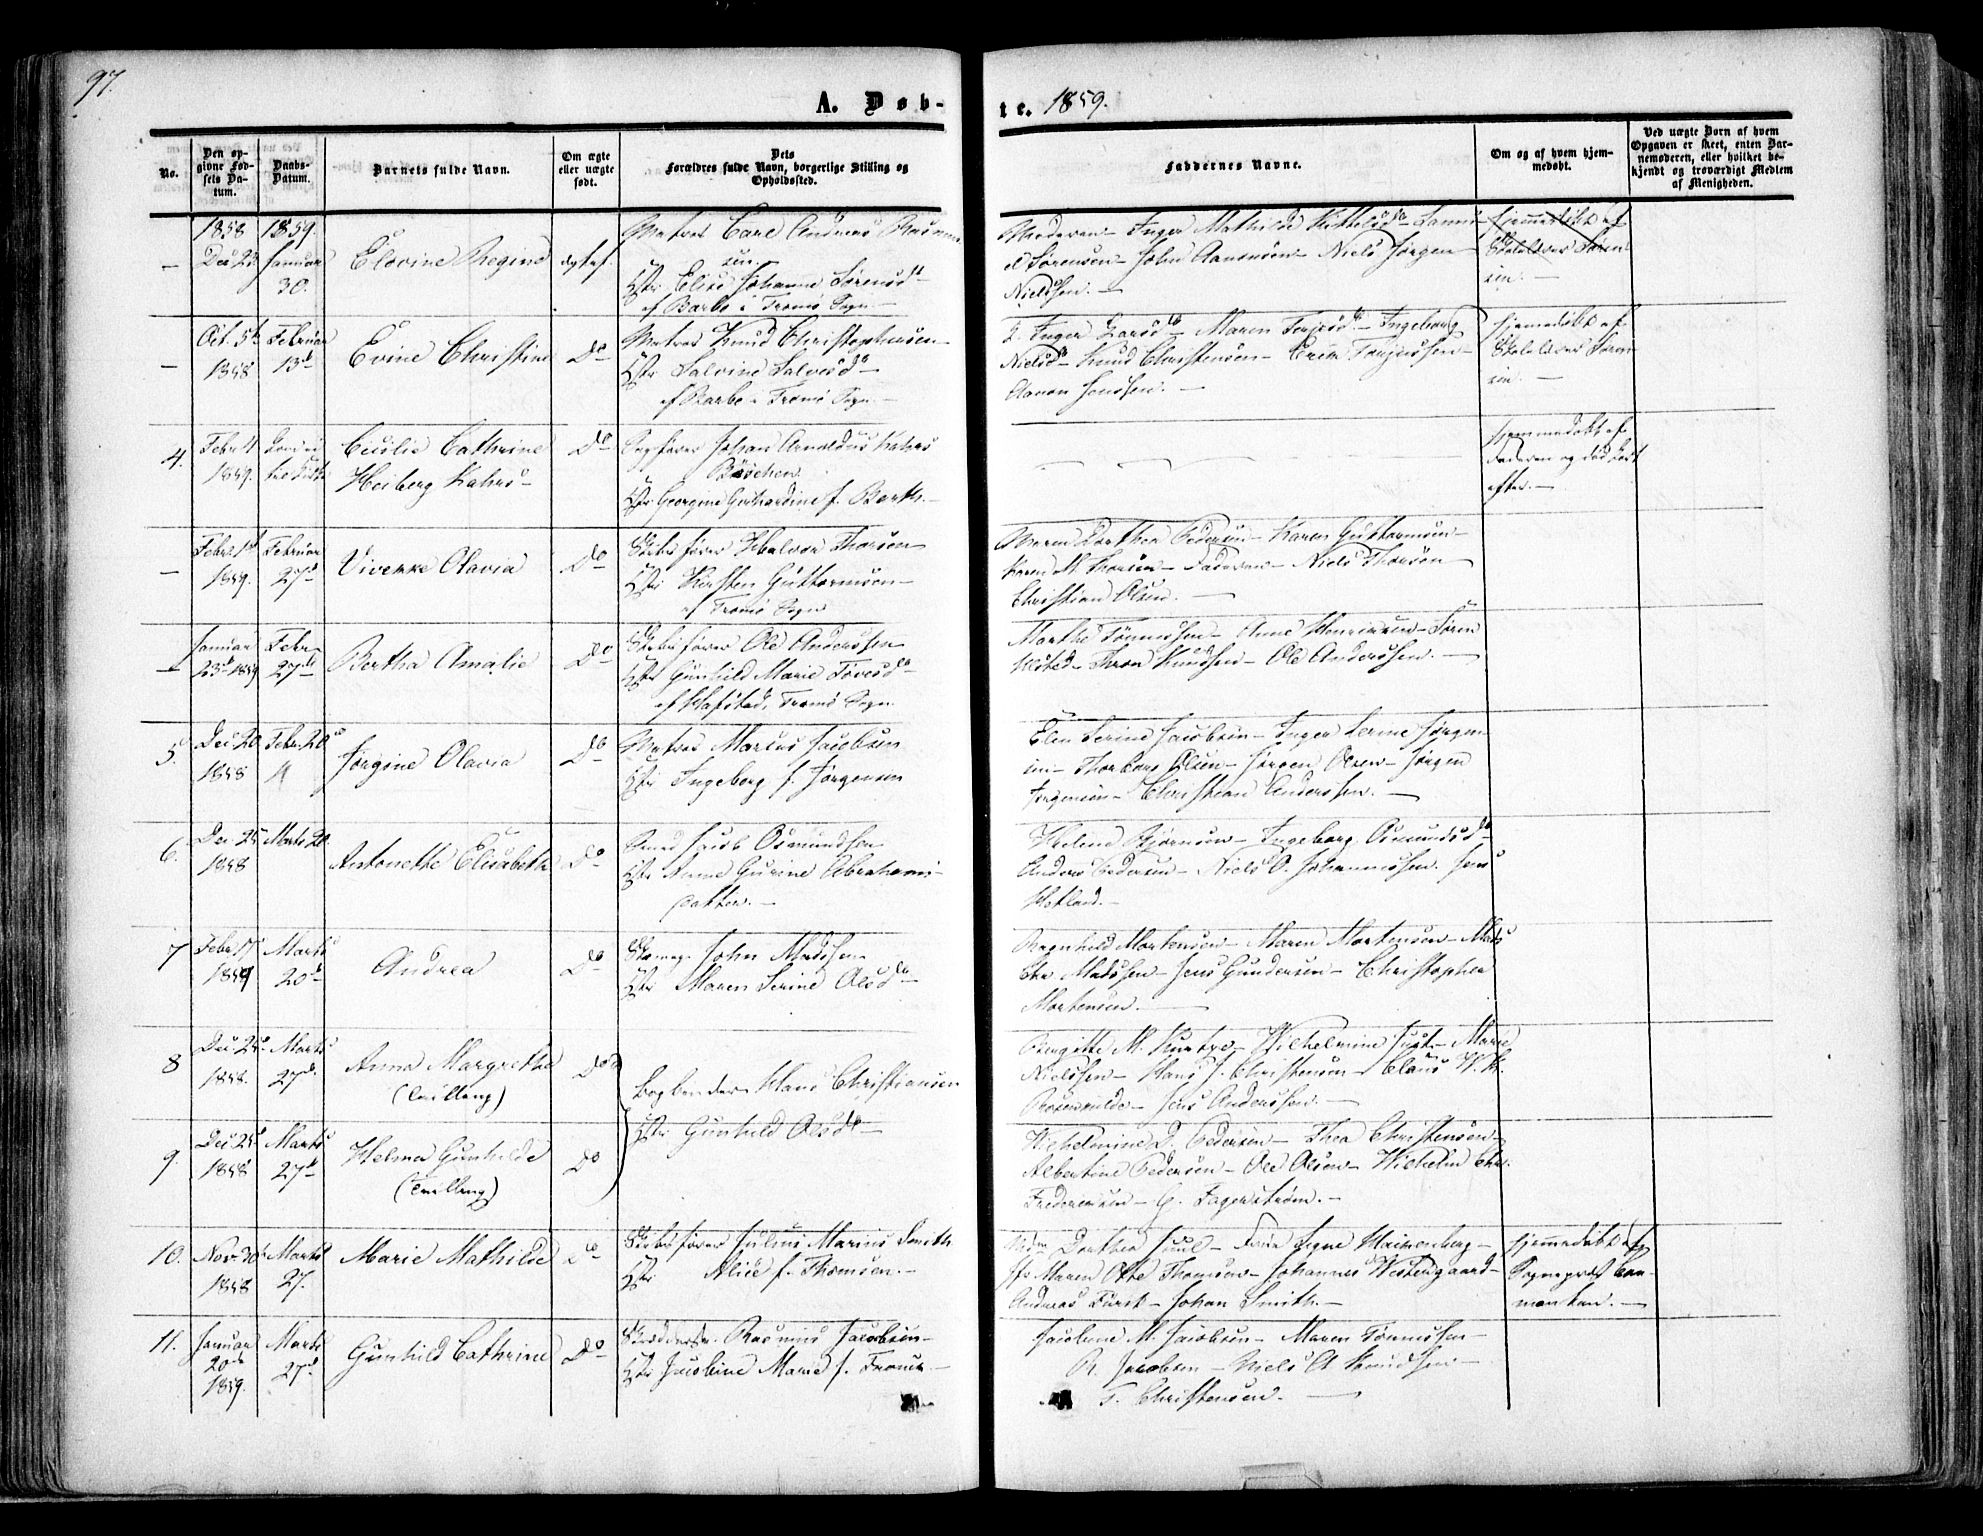 97.
A. Døb-
te. 1859.
No.
Den op-
givne Fød-
sels Da-
tum.
Daabs-
Datum.
Barnets fulde Navn.
Om ægte
eller uægte
født.
Dets
Forældres fulde Navn, borgerlige Stilling og
Opholdssted.
Faddernes Navne.
Om og af hvem hjem-
medøbt.
Ved uægte Børn af hvem
Opgaven er skeet, enten Bar-
nemoderen, eller hvilket be-
kjendt og troværdigt Medlem
af Menigheden.
1858
Dec 23
1859.
Januar
30.
Elevine Regine
ægtef.
Matros Carl Andreas Rasmus-
sen
Hst: Elise Johanne Sørensd
af Barbo i Tromø Sogn.
Moderen - Inger Mathilde Kittelsd -
el Sørensen - John Aanonsen - Niels Jørgen
Nielsen. -
hjemmedøbt af
Skolelærer Søren-
sen. -
Oct. 5t
1858
Februar
13d
Evine Christine
Do
Matros Knud Christophersen
Hst: Salvine Salvesd -
af Barbo i Tromø Sogn. -
Inger Larsd - Maren Terjesd - Ingeborg
Nielsd - Knud Christensen - Terjessen -
Aanon Jenssen. -
hjemmedøbt af
Skolelærer Søren-
sen. -
4.
Febr 4
1859.
Cecilie Cathrine
Heiberg Kahrs -
Do
Sagfører Johan Arnoldus Kahrs
Hst: Georgine Gerhardine f. Barth. -
hjemmedøbt af
Faderen og død kort
efter. -
Febr. 1st
1859.
Februar
27d
Vivekke Olavia
Do
Skibsfører Halvor Thorsen
Hst: Kirsten Guttormsen -
af Tromø Sogn
Maren Dorthea Pedersen - Karen Guttormsen -
Karen M. Thorsen - Faderen - Niels Thorsen
Christian Olsen. -
Januar
23d 1859
Febr
27de
Bertha Amalie
Do
Skibsfører Ole Anderssen
Hst: Gunhild Marie Tovesd -
af Hafsted, Tromø Sogn.
Marthe Tønnessen - Anne Henriksen - Søren
Ulsted - Thron Knudsen - Ole Anderssen. -
5.
Dec. 20
1858
Febr. 20
Jørgine Olavia
Do
Matros Marcus Jacobsen
Hst: Ingeborg f. Jørgensen
Elen Serine Jacobsen - Inger Serine Jørgen-
sen - Olsen - Jørgen Olsen - Jørgen
Jørgensen - Christian Anderssen. -
6.
Dec. 25
1858
Marts 20.
Antonette Elisabeth
Do
Jacob Osmundsen
Hst: Anne Gurine Abrahams-
datter. -
Helene Bjørnsen - Ingeborg Osmundsd -
Anders Pedersen - Niels O. Johannessen. Jens
Hetland. -
7
Febr. 17
1859
Marts
20d
Andrea
Do
John Madssen
Hst: Maren Serine Olsd -
Ragnhild Mortensen - Maren Mortensen - Mads
Chr Madssen - Jens Gundersen - Christopher
Mortensen. -
8
Dec. 25
1858.
Marts
27d.
Anna Margrethe
(Tvilling)
Do
Bogbinder Hans Christiansen
Hst: Gunhild Olsd -
Birgitte M. Kurtze - Wilhelmine Just - Marie
Nielssen - Hans J. Christensen - Claus W. K.
Rosenkilde - Jens Anderssen. -
9.
Dec. 25
1858
Marts
27d
Helma Gunhilde
(Tvilling)
Do
Wilhelmine D. Pedersen - Thea Christensen -
Albertine Pedersen - Ole Olsen - Wilhelm Chr.
Frederiksen - G. Fagerstrøm. -
10.
Nov. 30
1858
Marts
27.
Marie Mathilde
Do
Skibsfører Julius Marius Smith
Hst: Alice f. Thomsen. -
Mdm Dorthea Juul - Frue Signe -
Jfr Maren Otte Thomsen - Johannes Westergaard -
Andreas Furst - Johan Smith. -
hjemmedøbt af
Sognepræst
11.
Januar
20de
1859.
Marts
27d
Gunhild Cathrine
Do
Rasmus Jacobsen -
Hst: Jacobine Marie f. -
Jacobine M. Jacobsen - Maren Tønnessen -
R. Jacobsen - Niels A Knudsen -
T. Christensen. -